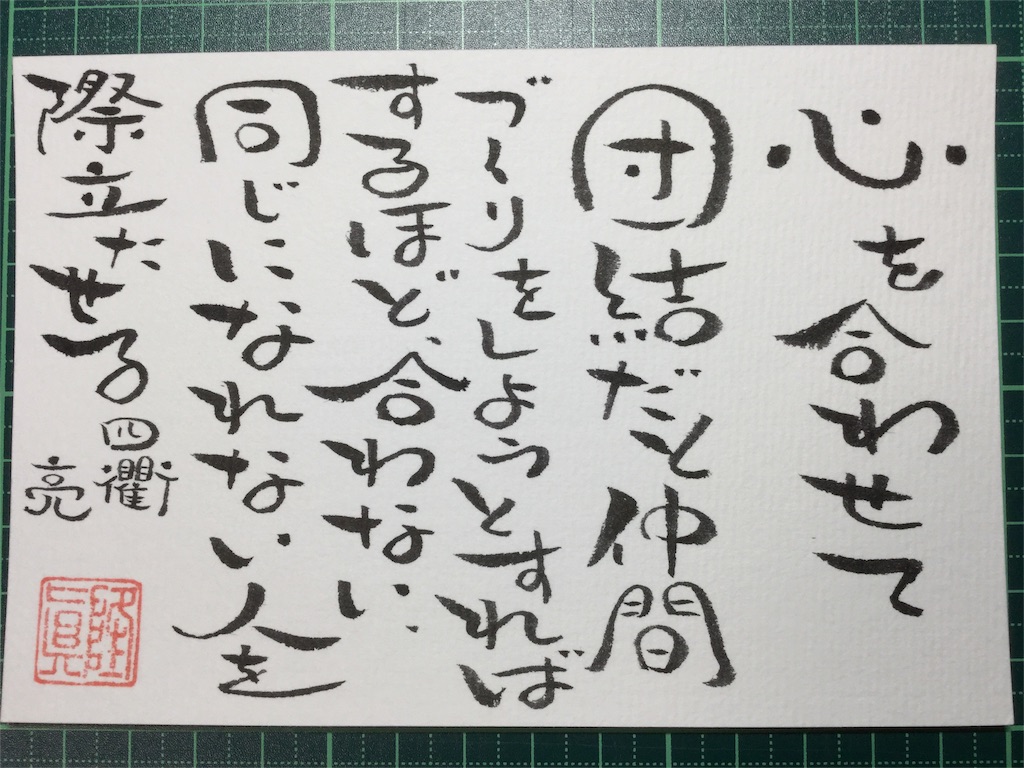 心を合わせて
団結だと仲間
づくりをしようとすれば
するほど、合わない、
同じになれない人を
際立だせる
四衢
亮